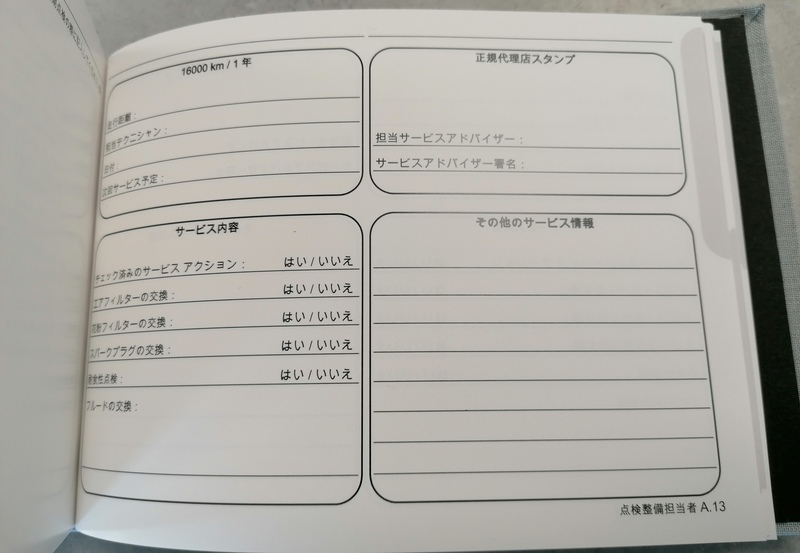 16000 km / 1 年
走行距離：
担当テクニシャン：
日付：
次回サービス予定：
正規代理店スタンプ
担当サービスアドバイザー：
サービスアドバイザー署名：
サービス内容
チェック済みのサービス アクション： はい / いいえ
エアフィルターの交換： はい / いいえ
花粉フィルターの交換： はい / いいえ
スパークプラグの交換： はい / いいえ
耐食性点検： はい / いいえ
フルードの交換：
その他のサービス情報
点検整備担当者 A.13